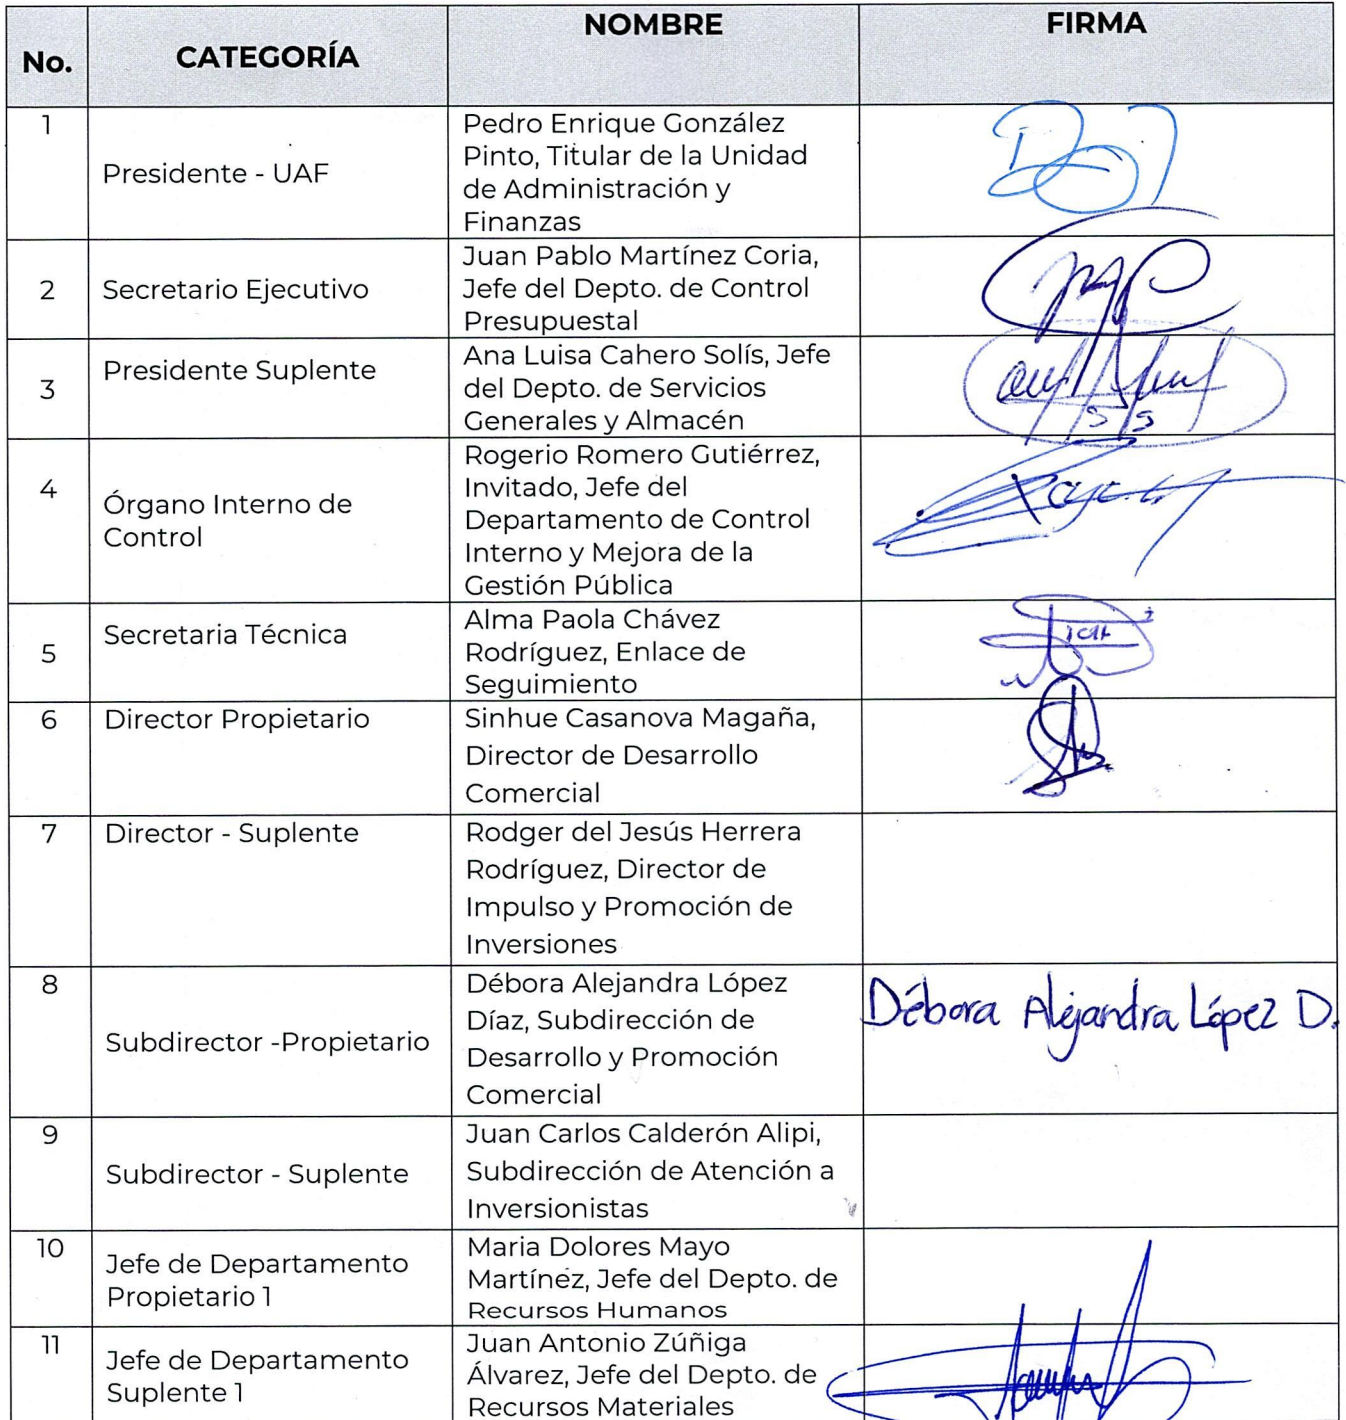 No.
CATEGORÍA
NOMBRE
FIRMA
1
Presidente - UAF
Pedro Enrique González
Pinto, Titular de la Unidad
de Administración y
Finanzas
2
Secretario Ejecutivo
Juan Pablo Martínez Coria,
Jefe del Depto. de Control
Presupuestal
3
Presidente Suplente
Ana Luisa Cahero Solís, Jefe
del Depto. de Servicios
Generales y Almacén
4
Órgano Interno de
Control
Rogerio Romero Gutiérrez,
Invitado, Jefe del
Departamento de Control
Interno y Mejora de la
Gestión Pública
5
Secretaria Técnica
Alma Paola Chávez
Rodríguez, Enlace de
Seguimiento
6
Director Propietario
Sinhue Casanova Magaña,
Director de Desarrollo
Comercial
7
Director - Suplente
Rodger del Jesús Herrera
Rodríguez, Director de
Impulso y Promoción de
Inversiones
8
Subdirector -Propietario
Débora Alejandra López
Díaz, Subdirección de
Desarrollo y Promoción
Comercial
Débora Alejandra López D.
9
Subdirector - Suplente
Juan Carlos Calderón Alipi,
Subdirección de Atención a
Inversionistas
10
Jefe de Departamento
Propietario 1
Maria Dolores Mayo
Martínez, Jefe del Depto. de
Recursos Humanos
11
Jefe de Departamento
Suplente 1
Juan Antonio Zúñiga
Álvarez, Jefe del Depto. de
Recursos Materiales